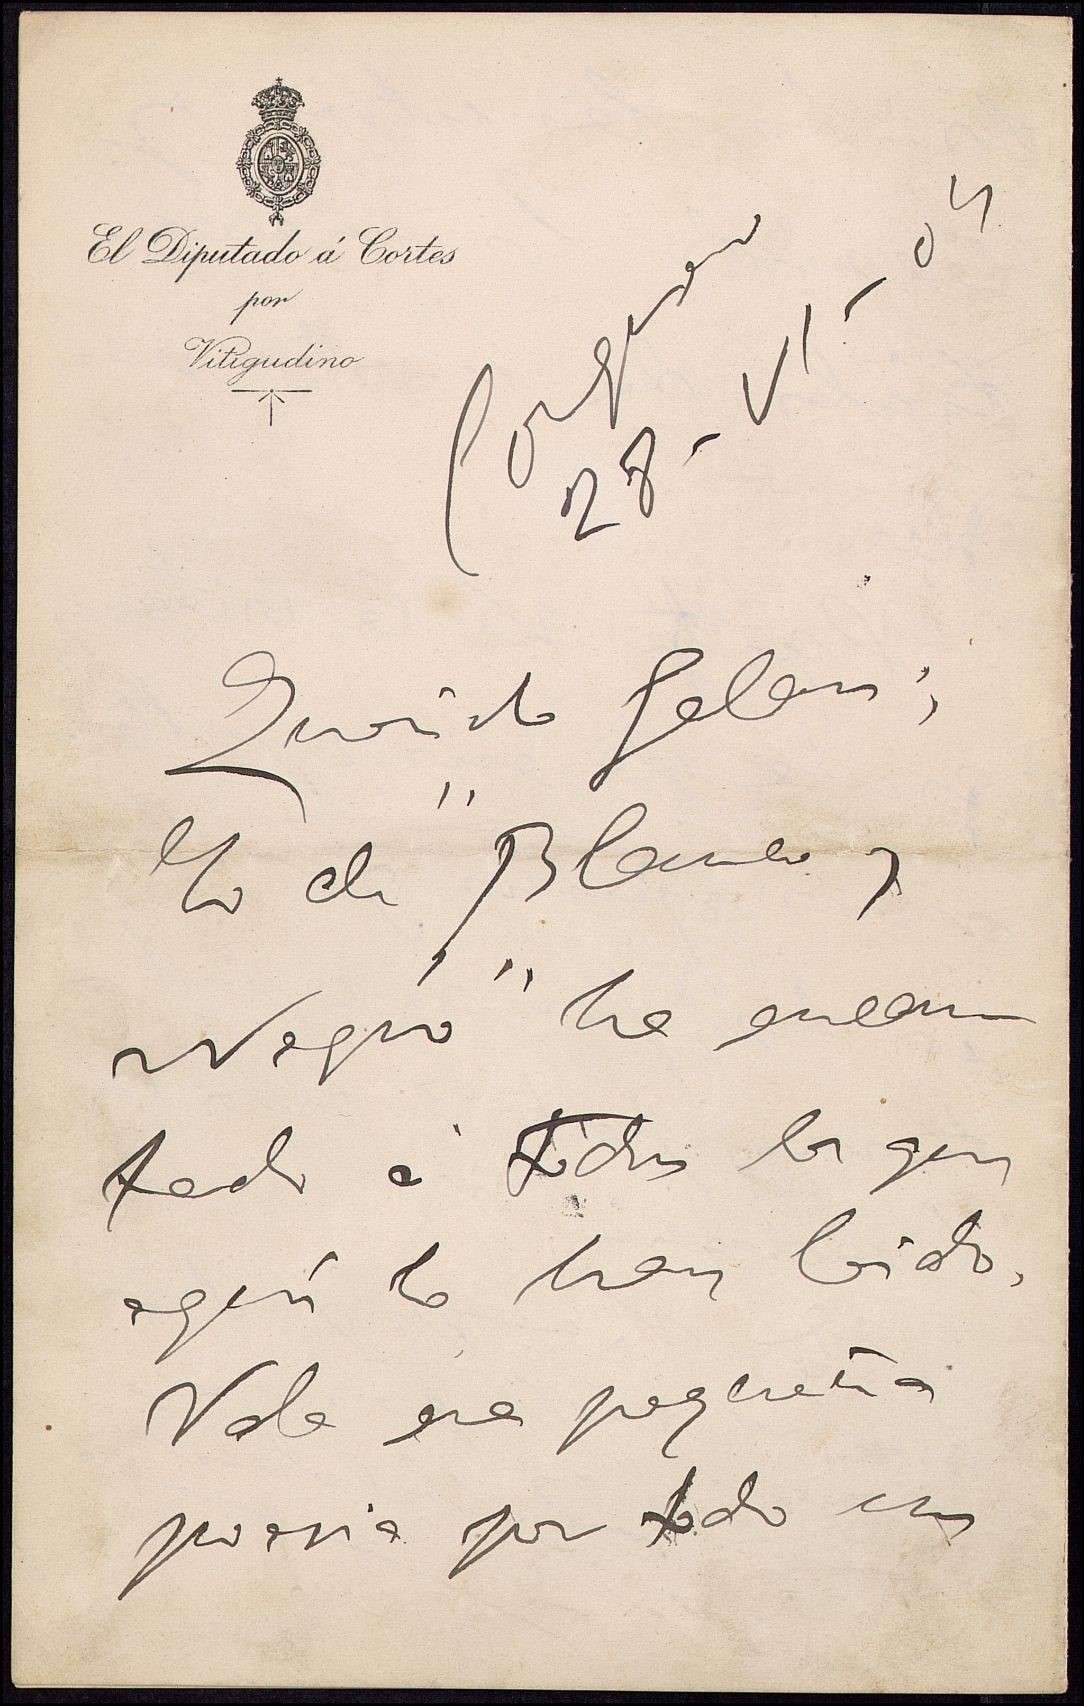 El Diputado á Cortes
por
Vitigudino
28-VI-04
Querido Galan;
Lo de "Blanco y
Negro" ha encan
tado á todos los que
aquí lo han leido.
Vale esa pequeña
poesia por todo un